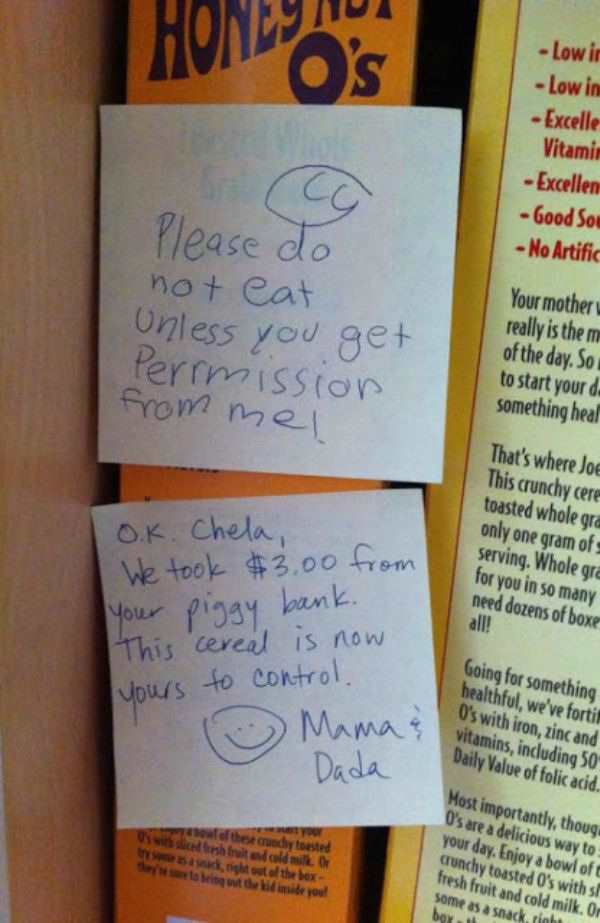 HONEY NUT
O's
Toasted Whole
CC
Please do
not eat
Unless you get
Perrmission
from me!
O.K. Chela,
We took $3.00 from
your piggy bank.
This cereal is now
yours to control.
Mama &
Dada
bowl of these crunchy toasted
O's with sliced fresh fruit and cold milk. Or
try some as a snack, right out of the box –
they're sure to bring out the kid inside you!
- Low in
- Low in
- Excelle
Vitamin
- Excellen
- Good Sou
- No Artific
Your mother
really is the m
of the day. So
to start your d
something heal
That's where Joe
This crunchy cere
toasted whole gra
only one gram of s
serving. Whole gra
for you in so many
need dozens of boxe
all!
Going for something
healthful, we've fortif
O's with iron, zinc and
vitamins, including 50
Daily Value of folic acid.
Most importantly, thoug
O's are a delicious way to
your day. Enjoy a bowl of t
crunchy toasted O's with sl
fresh fruit and cold milk. Or
some as a snack, right